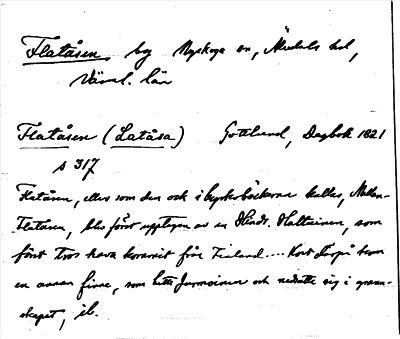 Flatåsen by Nyskoga sn, Älvdals hd,
Värml. län
Flatåsen (Latåsa) Gottlund, Dagbok 1821
s 317
Flatåsen, eller som den ock i kyrkoböckerna kallas, Mellan-
Flatåsen, blev först upptagen av en Hindr. Halttainen, som
först tros hava kommit från Finland.... Kort därpå kom
en annan finne, som hette Jurmoinen och nedsatte sig i gran-
skapet, ib.